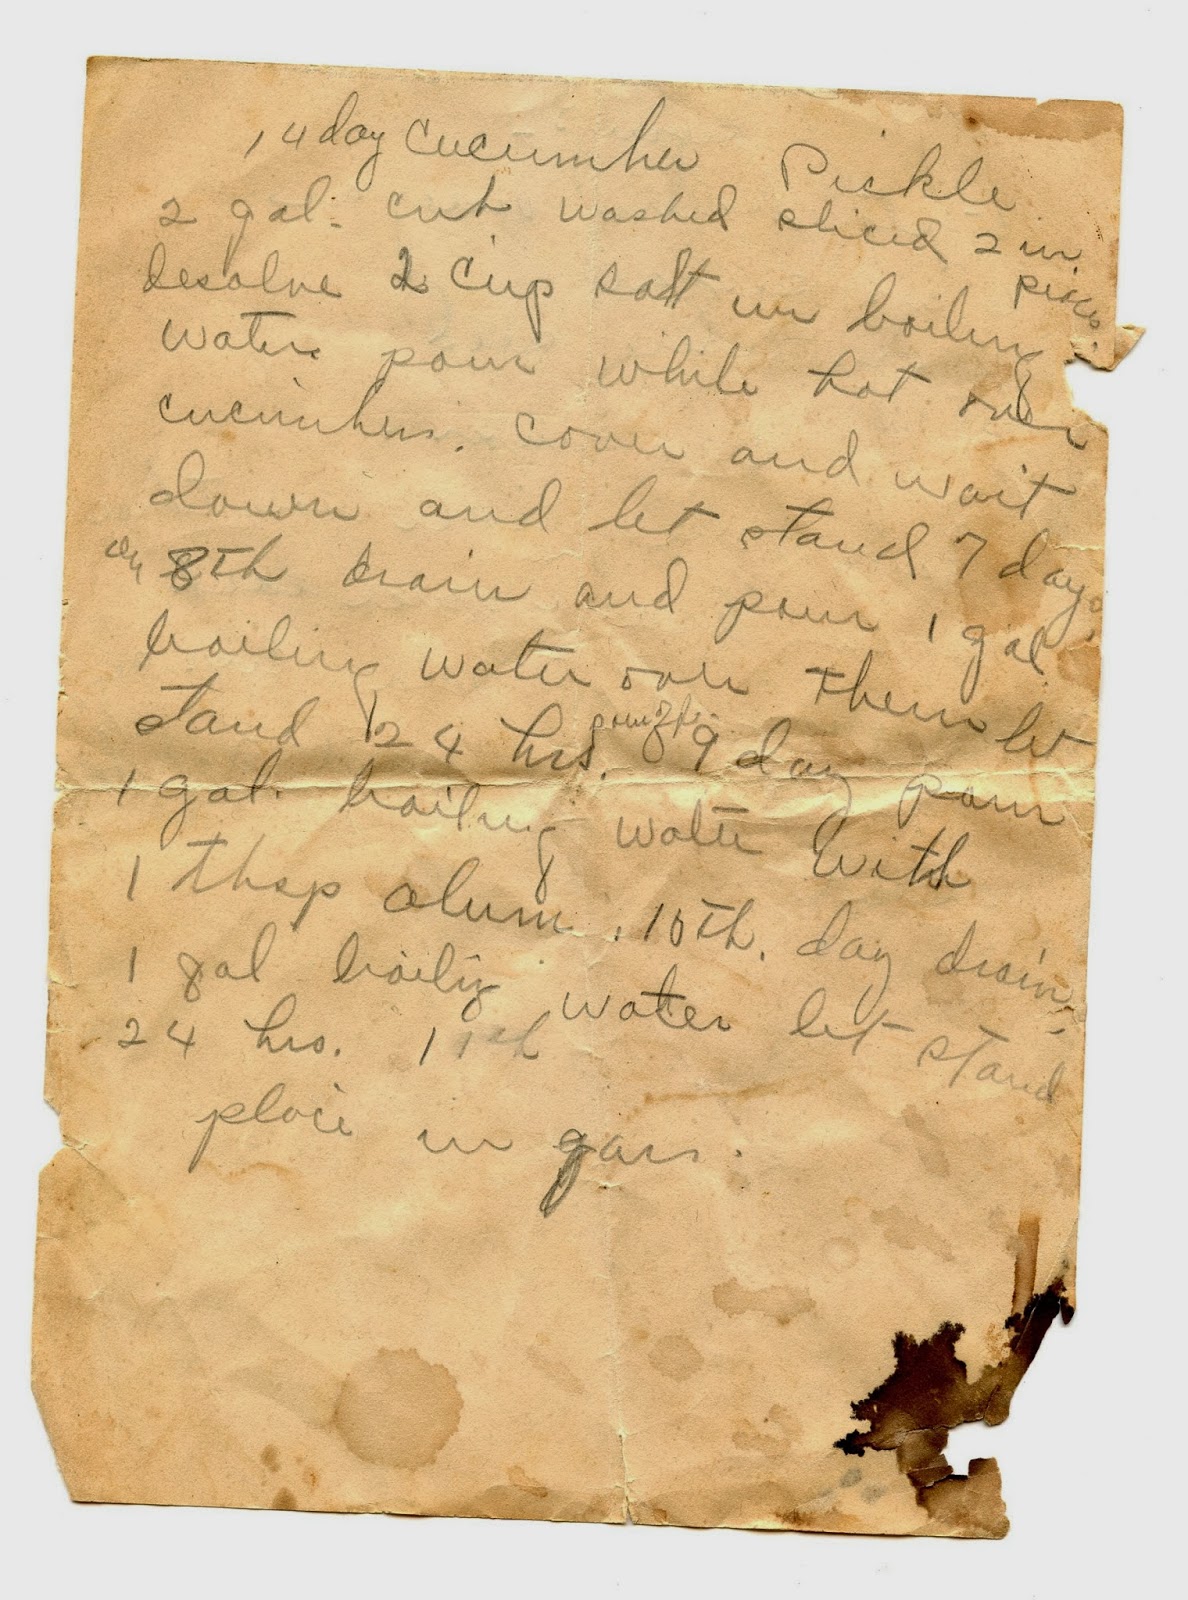 14 day Cucumber Pickle
2 gal. cut washed sliced 2 in.
pieces.
desolve 2 cup salt in boiling
water pour while hot over
cucumbers. cover and wait
down and let stand 7 days.
on 8th drain and pour 1 gal
boiling water over them let
stand 24 hrs. 9 day pour
1 gal. boiling water with
1 tbsp alum. 10th. day drain.
1 gal boiling water let stand
24 hrs. 11th
place in gars.